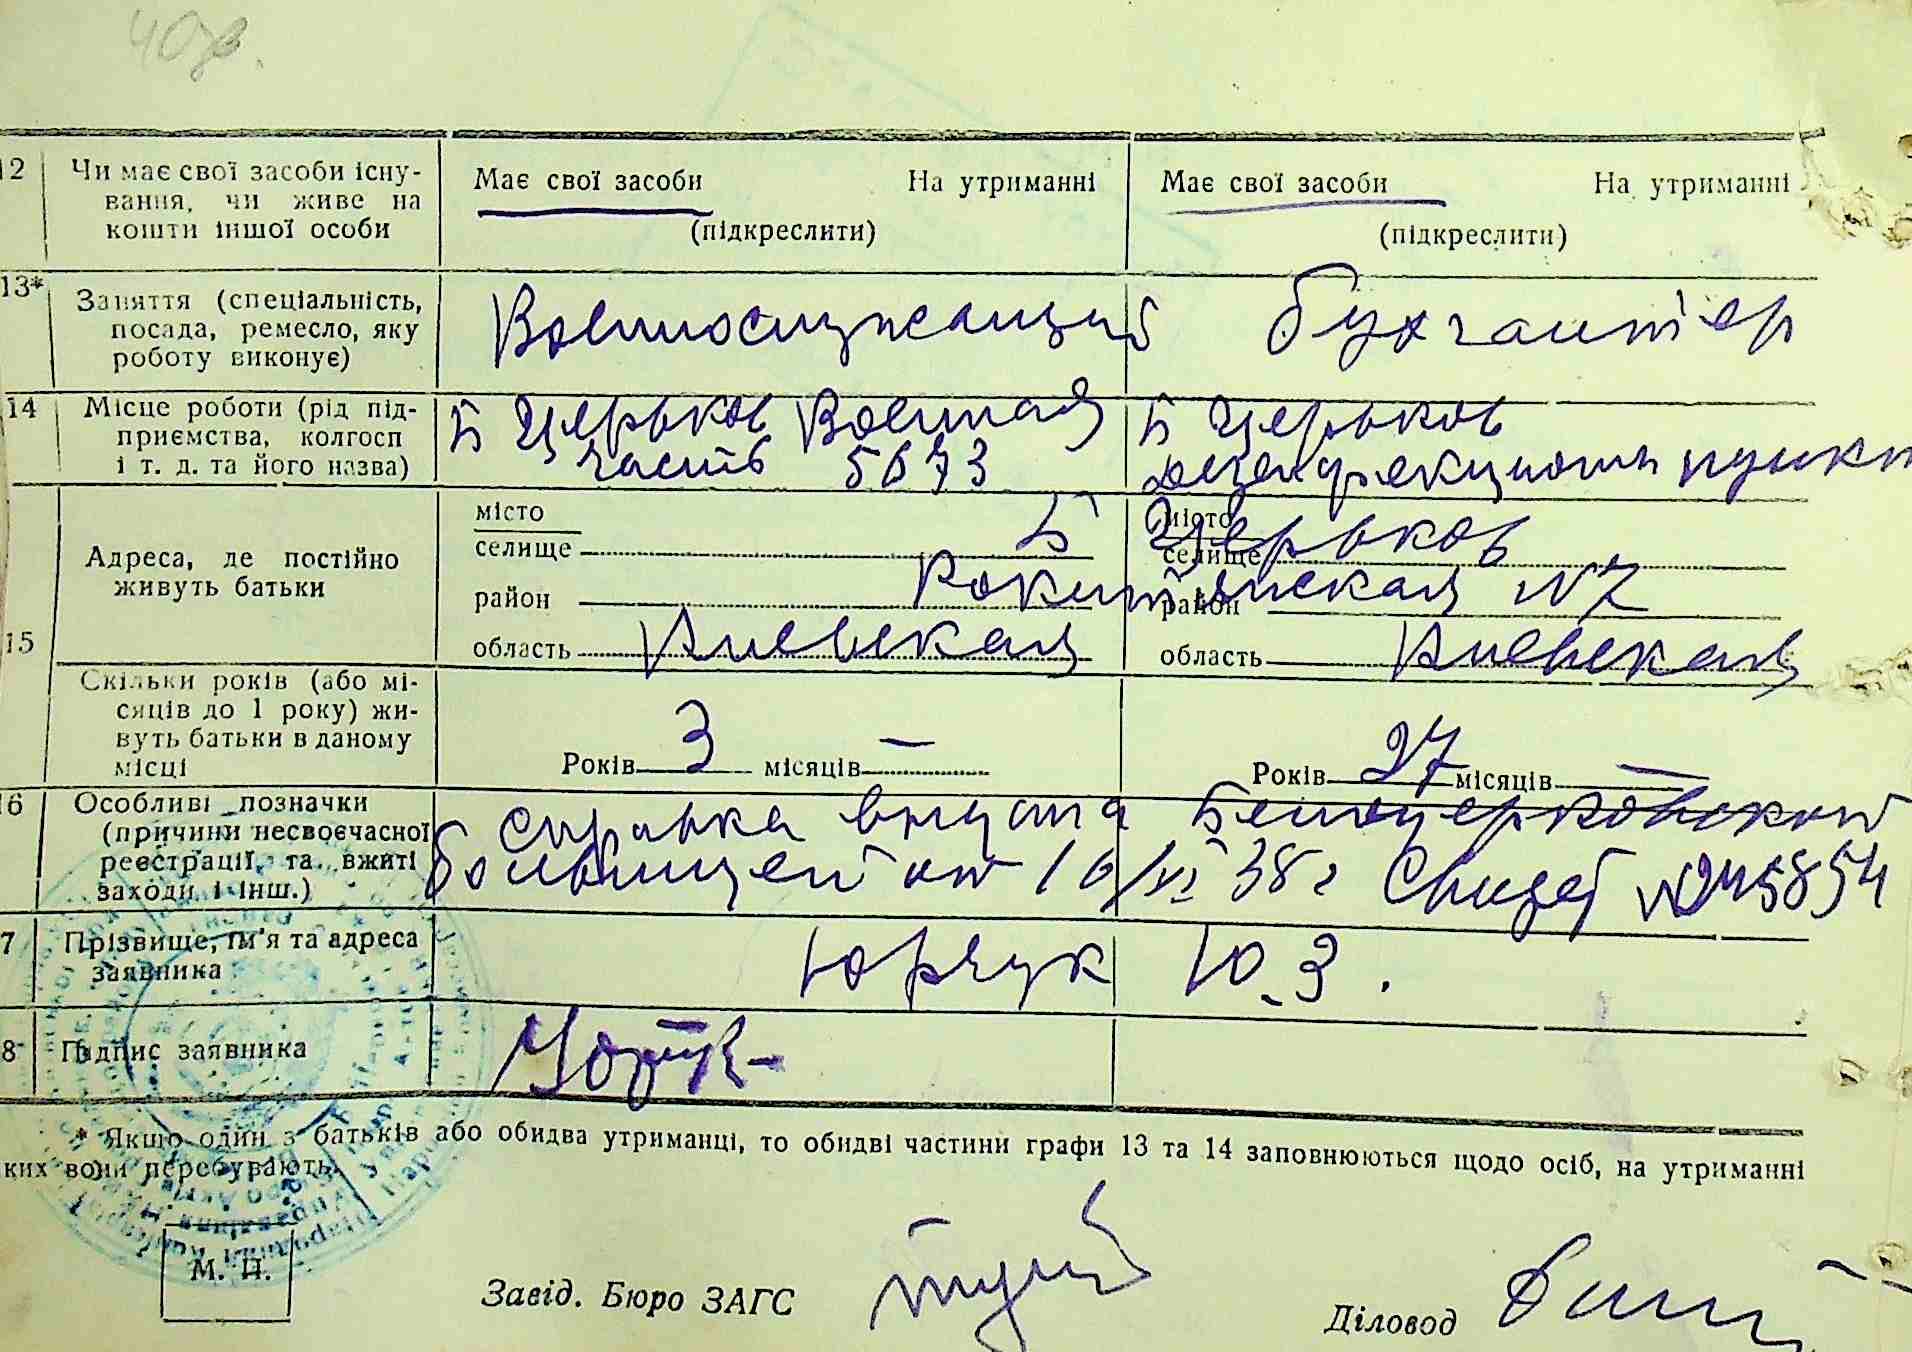 40р.
12 Чи має свої засоби існу-
вання, чи живе на
кошти іншої особи
Має свої засоби На утриманні
(підкреслити)
Має свої засоби На утриманні
(підкреслити)
13* Заняття (спеціальність,
посада, ремесло, яку
роботу виконує)
Военнослужащий
бухгалтер
14 Місце роботи (рід під-
приємства, колгосп
і т. д. та його назва)
Б Церьков Военная
часть 5673
Б Церьков
дезинфекционы пункт
15 Адреса, де постійно
живуть батьки
місто
селище
район
область Киевская
місто
селище
район
область Киевская
Б Церьков
Рокитянская №7
Скільки років (або мі-
сяців до 1 року) жи-
вуть батьки в даному
місці
Років 3 місяців —
Років 27 місяців —
16 Особливі позначки
(причини несвоєчасної
реєстрації, та вжиті
заходи і інш.)
Справка выдана Белоцерковской
больницей от 16/VI 38 г Свидет №245854
7 Прізвище, ім'я та адреса
заявника
Юрчук Ю.З.
8 Підпис заявника
* Якшо один з батьків або обидва утриманці, то обидві частини графи 13 та 14 заповнюються щодо осіб, на утриманні
ких вони перебувають.
М. П.
Завід. Бюро ЗАГС
Діловод